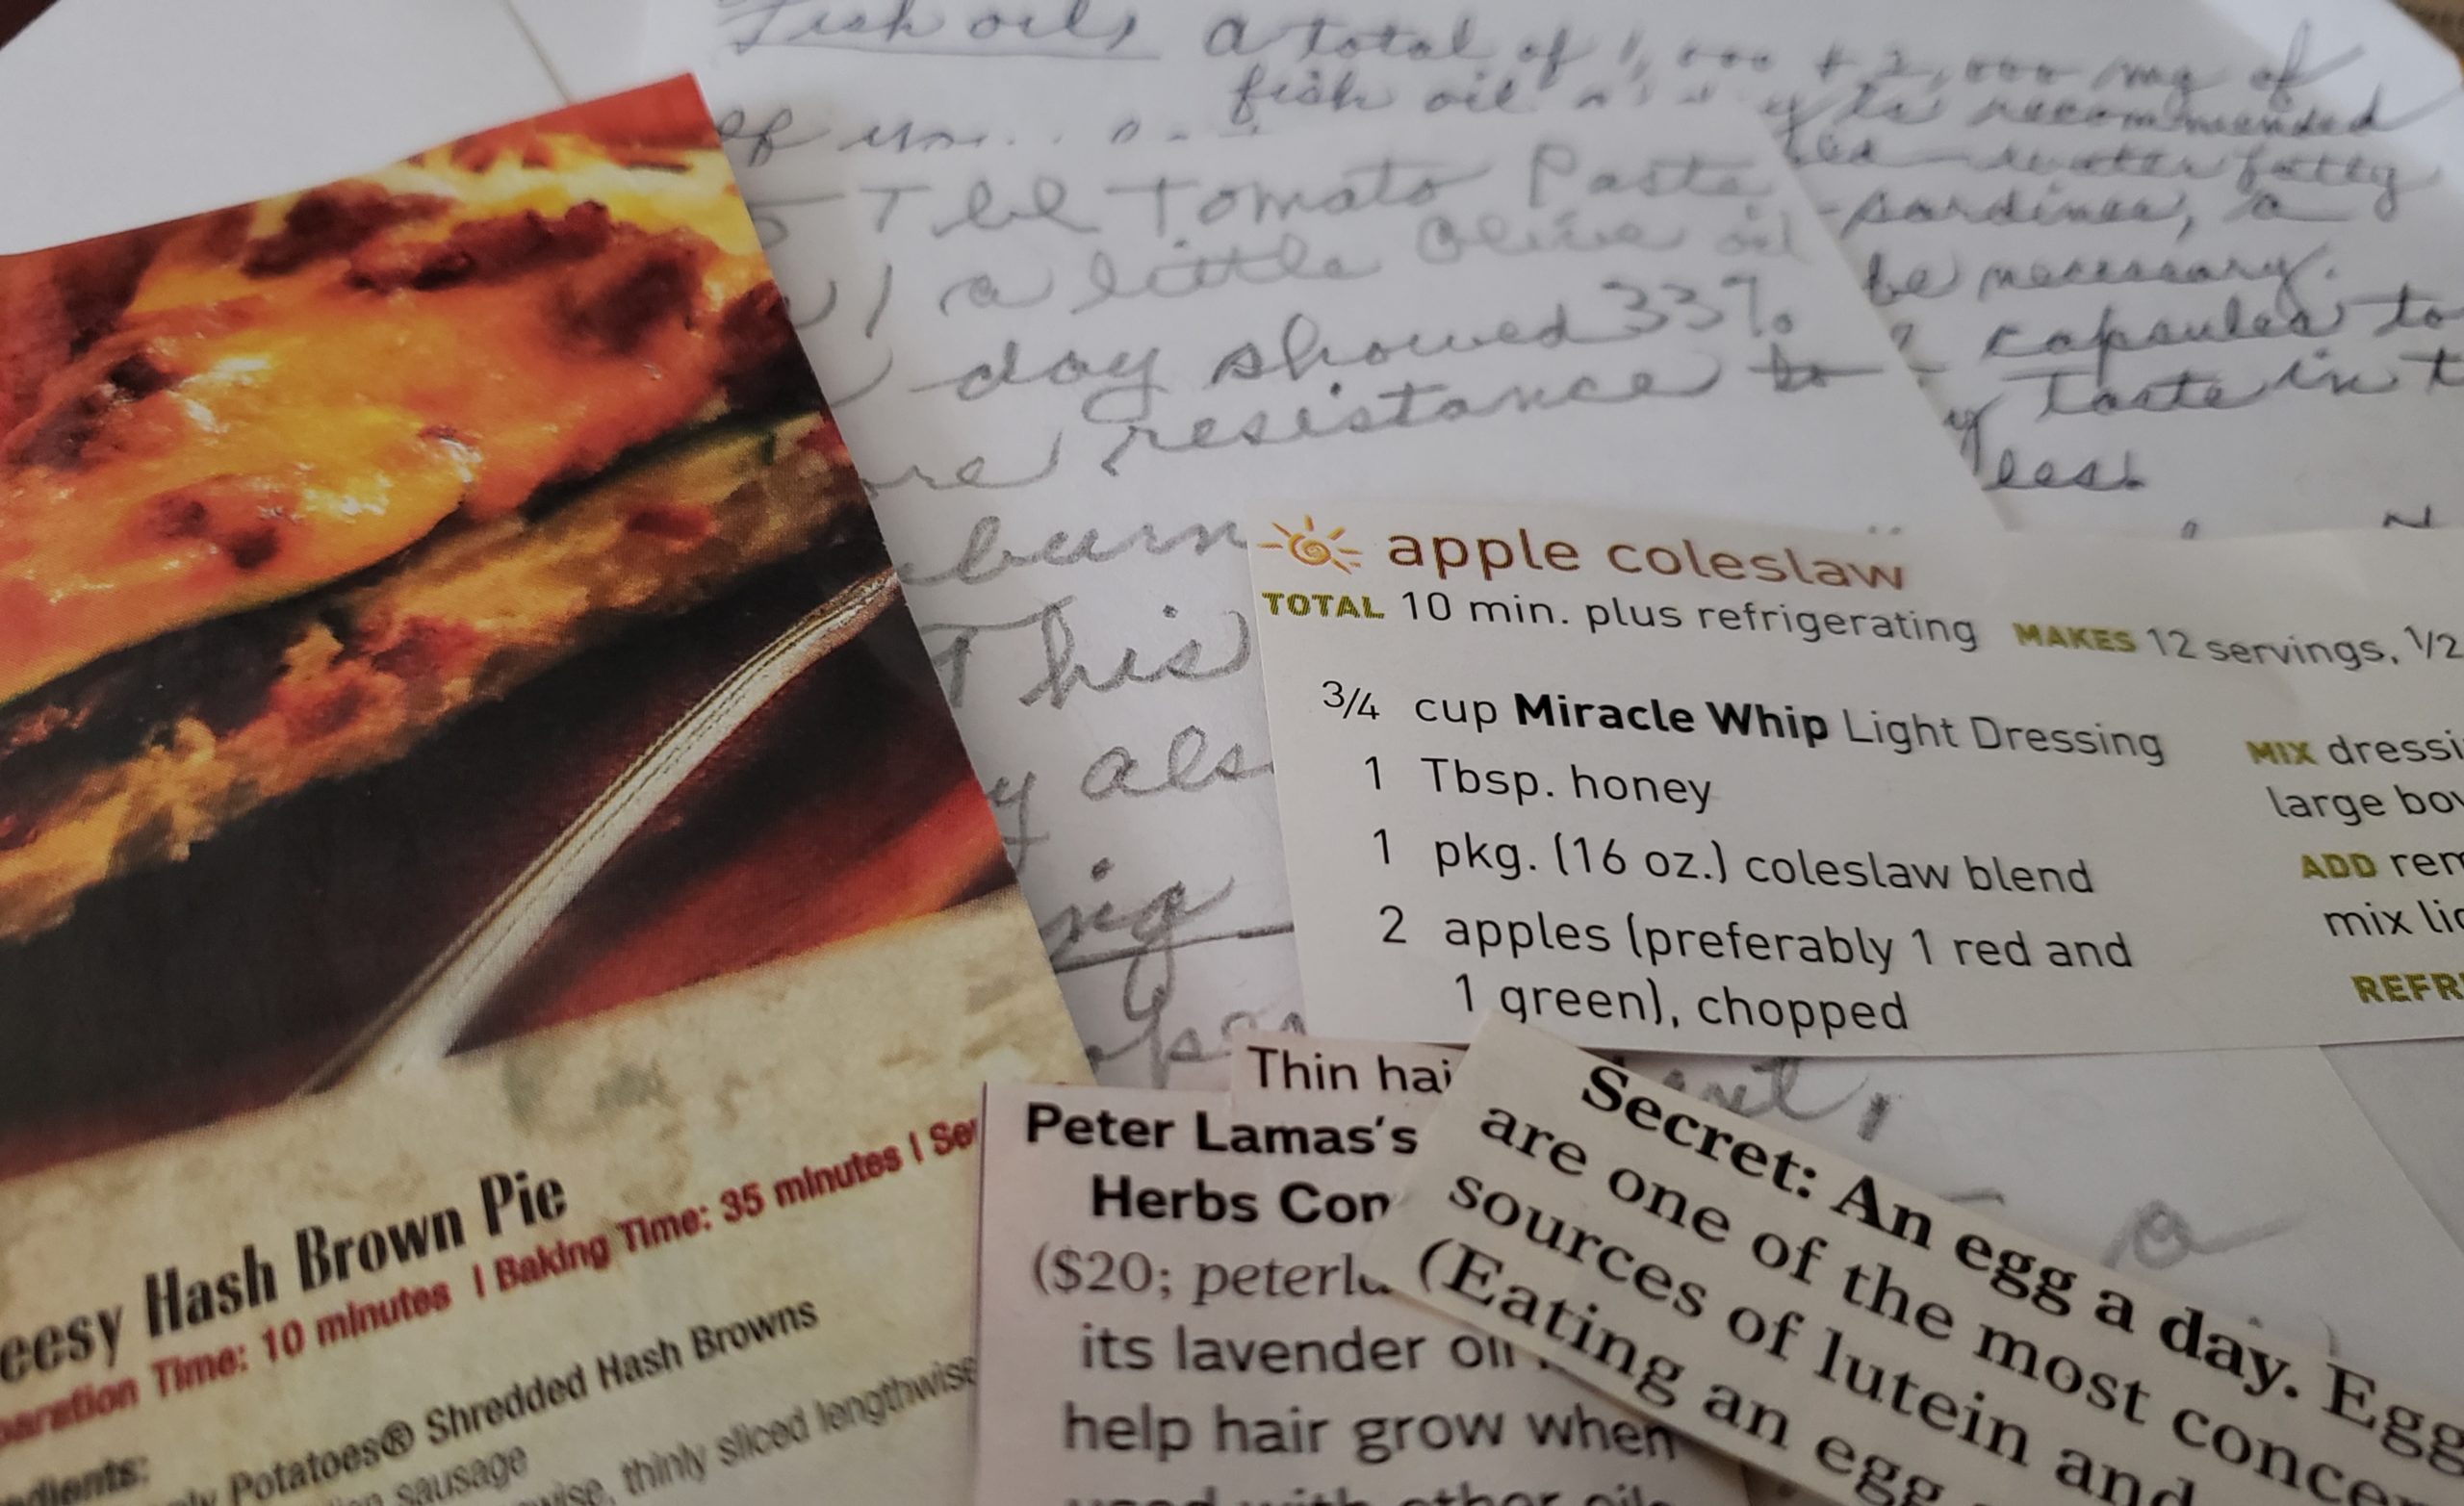 Fish oil, a total of 1,000 + 2,000 mg of
fish oil recommended
of
fatty
Tbl Tomato Paste
sardines, a
a little Olive oil
be necessary.
day showed 33%
capsules to
resistance to
y taste in t
less!
burn
This
als
ing
apple coleslaw
TOTAL 10 min. plus refrigerating MAKES 12 servings, 1/2
3/4 cup Miracle Whip Light Dressing
1 Tbsp. honey
1 pkg. (16 oz.) coleslaw blend
2 apples (preferably 1 red and
1 green), chopped
MIX dressi
large bow
ADD rem
mix lig
REFR
eesy Hash Brown Pie
paration Time: 10 minutes | Baking Time: 35 minutes | Ser
edients:
ly Potatoes® Shredded Hash Browns
sausage
wise, thinly sliced lengthwise
Thin hai
Peter Lamas's
Herbs Con
($20; peterla
its lavender oil
help hair grow when
used with other oil
Secret: An egg a day. Egg
are one of the most conce
sources of lutein and
(Eating an egg